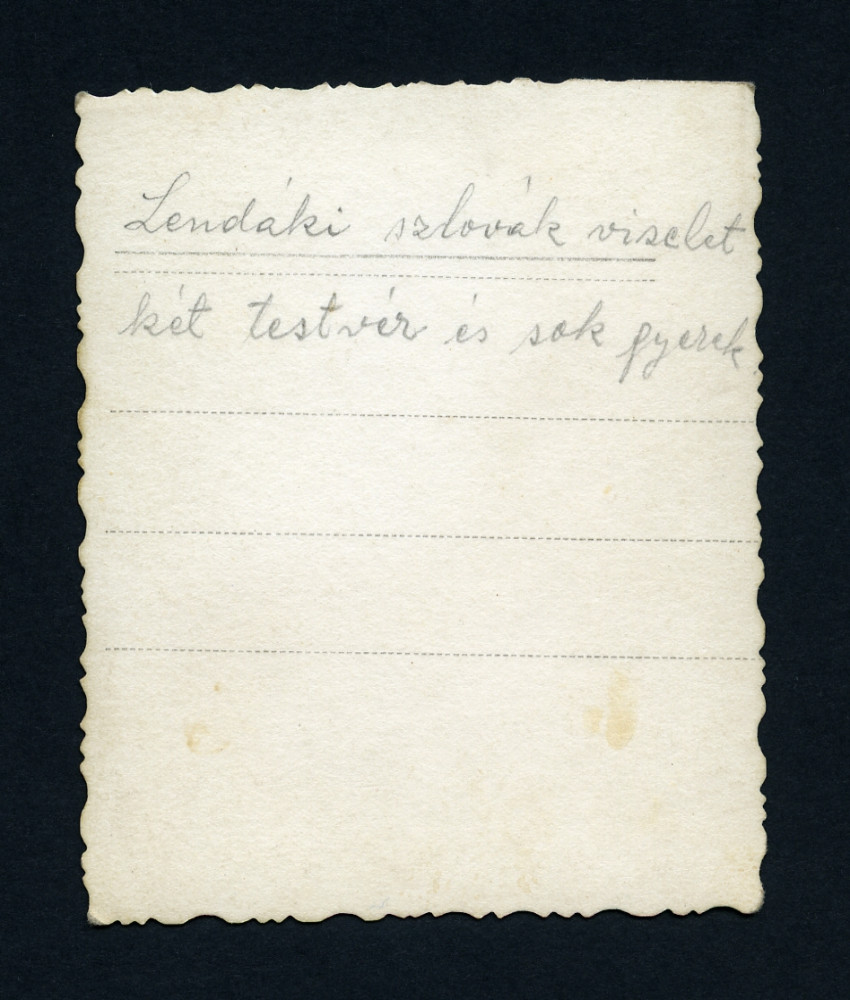 Lendáki szlovák viselet
két testvér és sok gyerek.